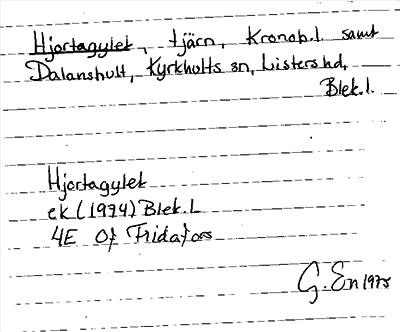 Hjortagylet, tjärn, Kronob.l. samt
Dalanshult, Kyrkhults sn, Listers hd,
Blek.l.
Hjortagylet
ek (1974) Blek.L
4E 0f Fridafors
G. En 1975